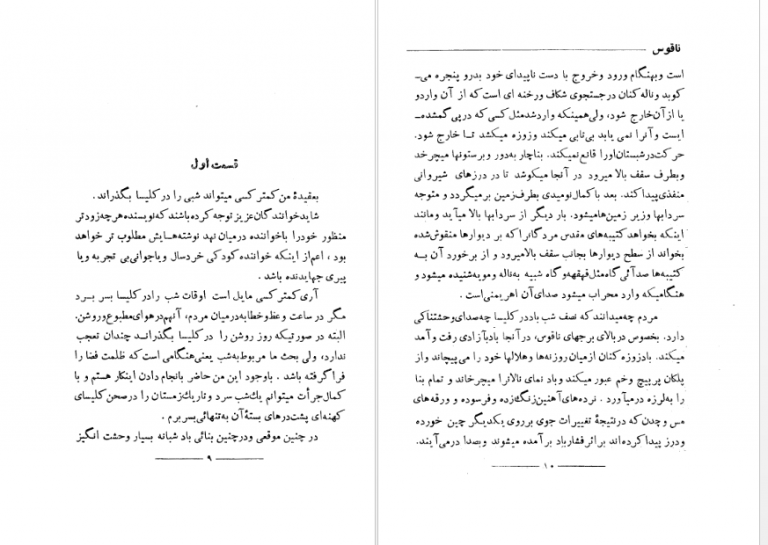 قسمت اول
بعقیدهٔ من کمتر کسی میتواند شبی را در کلیسا بگذراند.
شاید خوانندگان عزیز توجه کرده باشند که نویسنده هرچه زودتر
منظور خود را با خواننده درمیان نهد نوشته‌هایش مطلوب تر خواهد
بود ، اعم از اینکه خواننده کودکی خردسال و یا جوانی بی تجربه و یا
پیری جهاندیده باشد .
آری کمتر کسی مایل است اوقات شب را در کلیسا بسر برد
مگر در ساعت وعظ و خطابه درمیان مردم، آنهم در هوای مطبوع و روشن.
البته در صورتیکه روز روشن را در کلیسا بگذرانـد چندان تعجب
ندارد، ولی بحث ما مربوط به شب یعنی هنگامی است که ظلمت فضا را
فرا گرفته باشد . با وجود این من حاضر بانجام دادن اینکار هستم و با
کمال جرأت میتوانم یک شب سرد و تاریک زمستان را در صحن کلیسای
کهنه‌ای پشت درهای بستهٔ آن به تنهائی بسر برم .
در چنین موقعی و در چنین بنائی باد شبانه بسیار وحشت انگیز
۹
ناقوس
است و بهنگام ورود و خروج با دست ناپیدای خود بدر و پنجره می‌ـ
کوبد و ناله کنان در جستجوی شکاف و رخنه ای است که از آن وارد و
یا از آن خارج شود، ولی همینکه وارد شد مثل کسی که در پی گمشده‌ـ
ایست و آنرا نمی یابد بی‌تابی میکند و زوزه میکشد تـا خارج شود.
حرکت در شبستان او را قانع نمیکند. بناچار به دور و بر ستونها میچرخد
و بطرف سقف بالا میرود در آنجا میکوشد تا در درزهای شیروانی
منفذی پیدا کند. بعد با کمال نومیدی بطرف زمین برمیگردد و متوجه
سردابها و زیر زمین‌ها میشود. بار دیگر از سردابها بالا میآید و مانند
اینکه بخواهد کتیبه‌های مقدس مردگانرا که بر دیوارها منقوش شده
بخواند از سطح دیوارها بجانب سقف بالا میرود و از برخورد آن بــه
کتیبه‌ها صدائی گاه مثل قهقهه و گاه شبیه به ناله و مویه شنیده میشود و
هنگامیکه وارد محراب میشود صدای آن اهریمنی است .
مردم چه میدانند که نصف شب باد در کلیسا چه صدای وحشتناکی
دارد. بخصوص در بالای برجهای ناقوس، در آنجا باد بآزادی رفت و آمد
میکند. باد زوزه کنان از میان روزنه‌ها و هلالها خود را می‌پیچاند و از
پلکان پر پیچ و خم عبور میکند و باد نمای نالانرا میچرخاند و تمام بنا
را به لرزه درمیآورد . نرده‌های آهنین زنگ زده و فرسوده و ورقه‌های
مس و چدن که در نتیجهٔ تغییرات جوی بر روی یکدیگر چین خورده
و درز پیدا کرده‌اند بر اثر فشار باد برآمده میشوند و بصدا درمی‌آیند.
۱۰